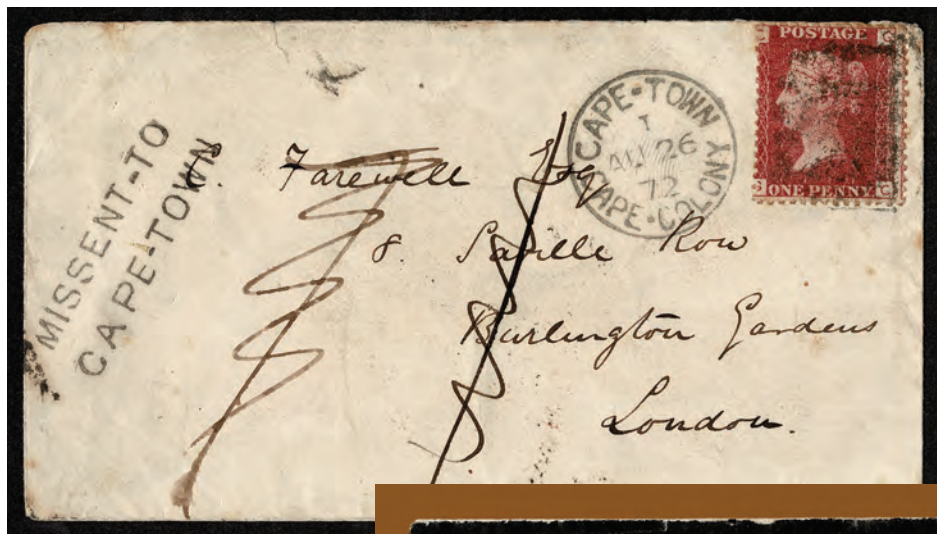 MISSENT-TO
CAPE-TOWN
CAPE-TOWN
1
AU 26
72
CAPE-COLONY
POSTAGE
C
ONE PENNY
C C
Farewell Esq
8. Saville Row
Burlington Gardens
London.